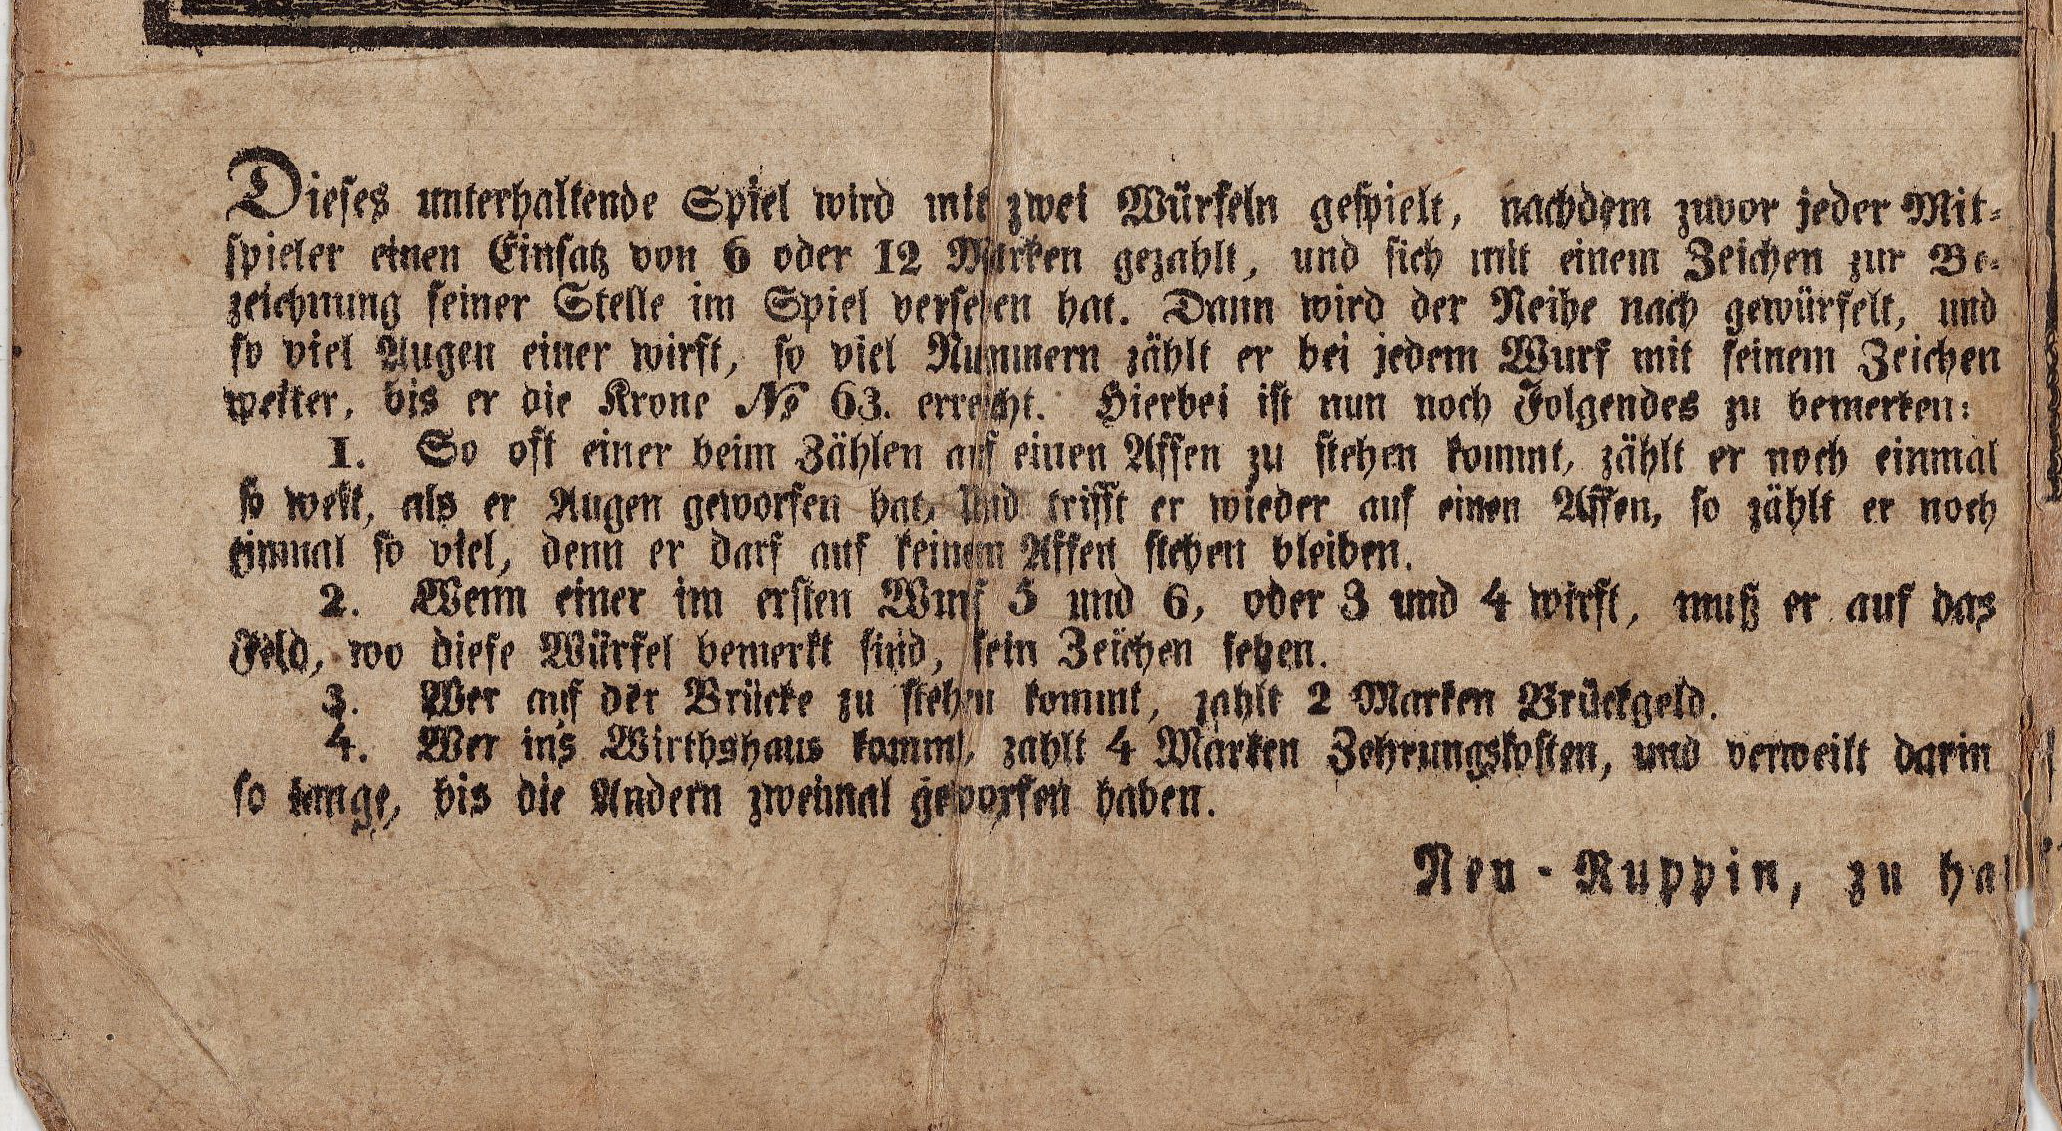 Dieses unterhaltende Spiel wird mit zwei Würfeln gespielt, nachdem zuvor jeder Mit-
spieler einen Einsatz von 6 oder 12 Marken gezahlt, und sich mit einem Zeichen zur Be-
zeichnung seiner Stelle im Spiel versehen hat. Dann wird der Reihe nach gewürfelt, und
so viel Augen einer wirft, so viel Nummern zählt er bei jedem Wurf mit seinem Zeichen
weiter, bis er die Krone № 63. erreicht. Hierbei ist nun noch Folgendes zu bemerken:
1. So oft einer beim Zählen auf einen Affen zu stehen kommt, zählt er noch einmal
so weit, als er Augen geworfen hat, und trifft er wieder auf einen Affen, so zählt er noch
einmal so viel, denn er darf auf keinem Affen stehen bleiben.
2. Wenn einer im ersten Wurf 5 und 6, oder 3 und 4 wirft, muß er auf das
Feld, wo diese Würfel bemerkt sind, sein Zeichen setzen.
3. Wer auf der Brücke zu stehen kommt, zahlt 2 Marken Brückgeld.
4. Wer in's Wirthshaus kommt, zahlt 4 Marken Zehrungskosten, und verweilt darin
so lange, bis die Andern zweimal geworfen haben.
Neu-Ruppin, zu ha